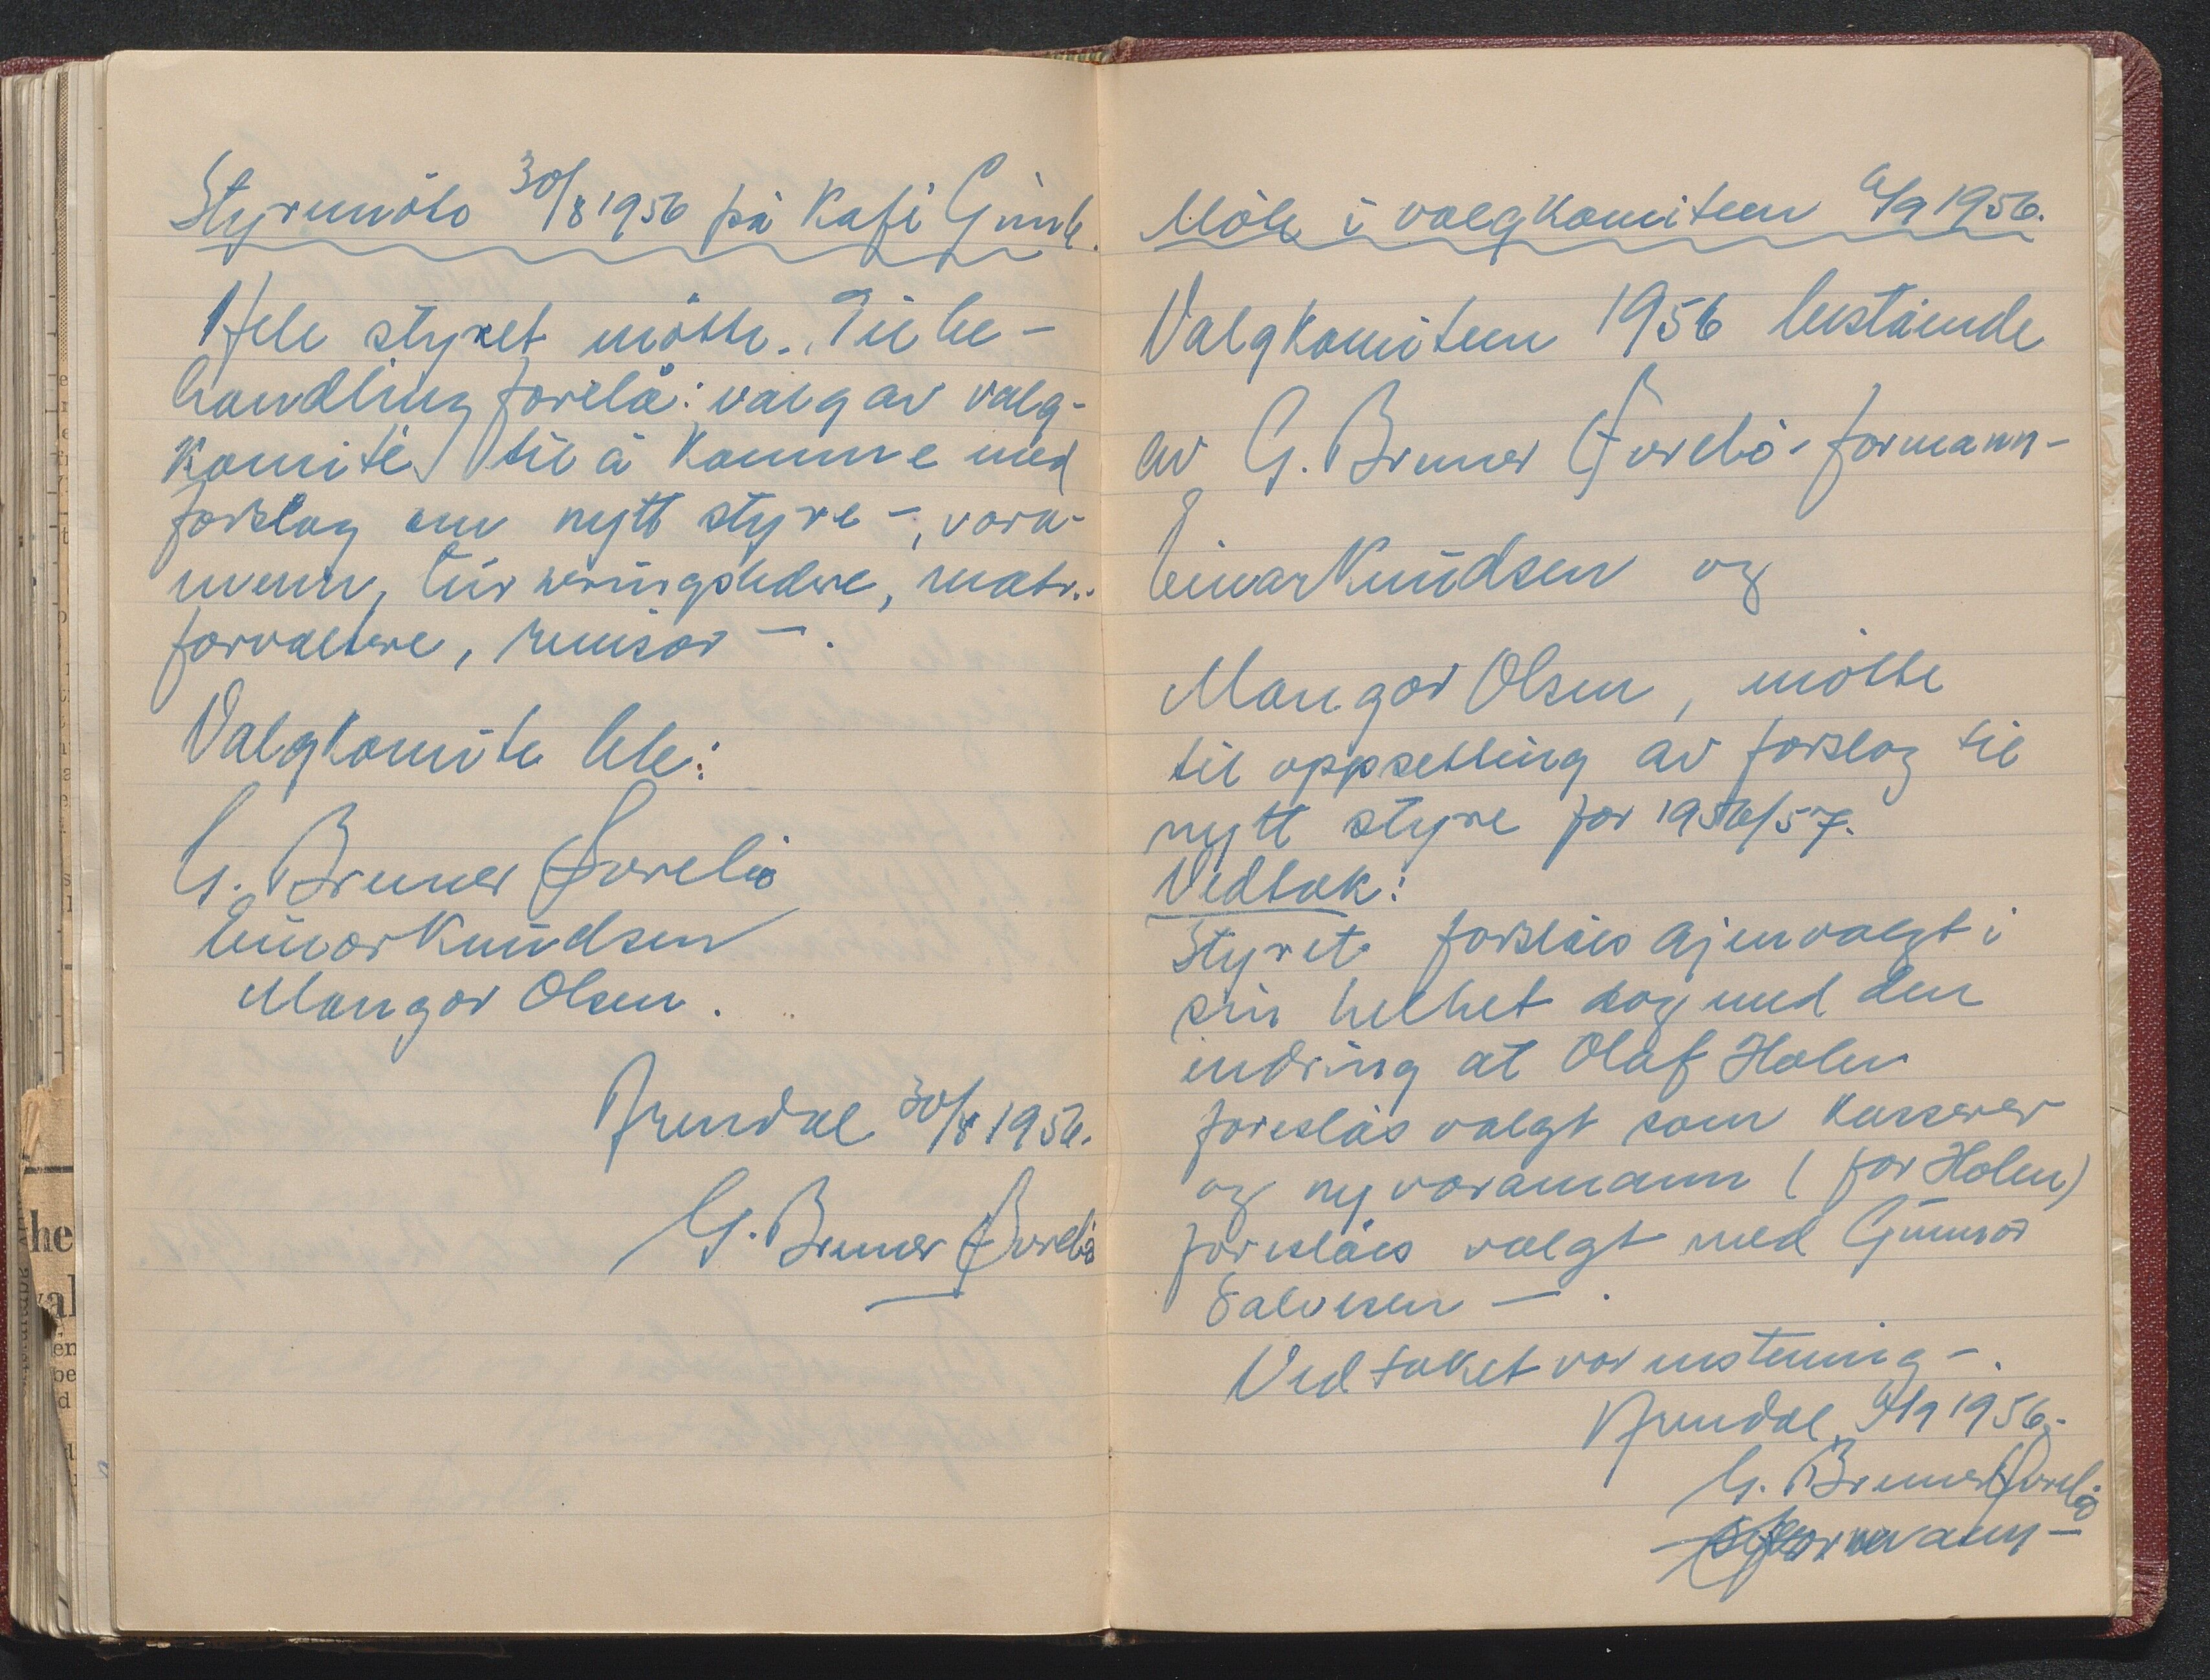 Styremöte 30/8 1956 på Kafé Gimle.
Hele styret møtte. Til be-
handling forelå: valg av valg-
komité til å komme med
forslag om nytt styre -, vara-
menn, turneringsledere, matr.-
forvaltere, revisor -.
Valgkomite ble:
G. Bruner Øvrebö
Einar Knudsen
Mangor Olsen.
Arendal 30/8 1956.
G. Bruner Øvrebö
Möte i valgkomiteen /9 1956.
Valgkomiteen 1956 bestående
av G. Bruner Øvrebö - formann -
Einar Knudsen og
Mangor Olsen, mötte
til oppsetting av forslag til
nytt styre for 1956/57.
Vedtak:
Styret foreslåes gjenvalgt i
sin helhet dog med den
endring at Olaf Holen
foreslås valgt som kasserer
og ny varamann (for Holen)
foreslåes valgt med Gunnar
Salvesen -.
Vedtaket var enstemmig -.
Arendal /9 1956.
G. Bruner Øvrebö
formann -
he
val
en
be
d